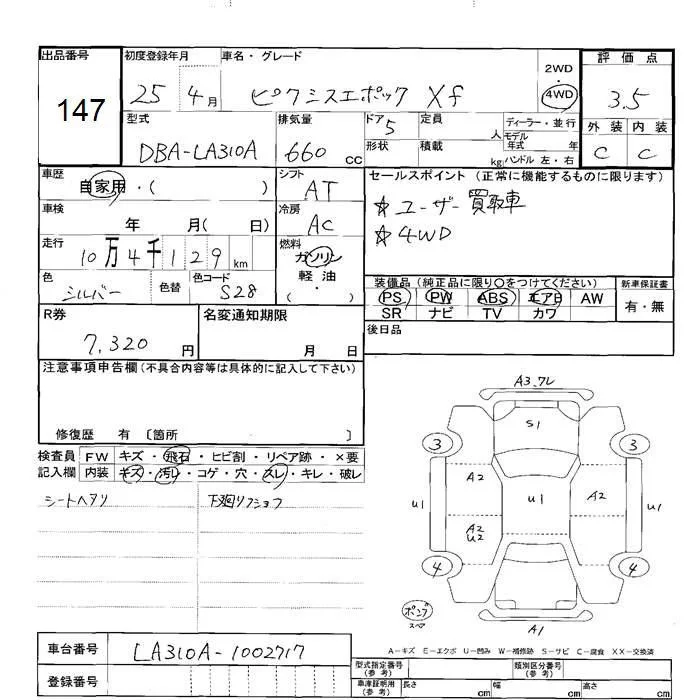 出品番号
147
初度登録年月
25 4月
車名・グレード
ピクシスエポック Xf
2WD
・
4WD
評価点
3.5
外装 内装
C C
型式
DBA-LA310A
排気量
660 cc
ドア 5
形状
定員 人
積載 kg
ディーラー・並行
モデル年式 年
ハンドル 左・右
車歴
自家用・( )
シフト
AT
車検
年 月( 日)
冷房
AC
走行
10万4千129km
燃料
ガソリン
軽・油
( ・ )
色
シルバー
色替
色コード
S28
セールスポイント (正常に機能するものに限ります)
☆ユーザー買取車
☆4WD
装備品 (純正品に限り○をつけてください)
PS PW ABS エアB AW
SR ナビ TV カワ
新車保証書
有・無
後日品
R券
7,320円
名変通知期限
月 日
注意事項申告欄(不具合内容等は具体的に記入して下さい)
修復歴 有 〔箇所 〕
検査員記入欄
FW キズ・飛石・ヒビ割・リペア跡・×要
内装 キズ・汚レ・コゲ・穴・スレ・キレ・破レ
シートヘタリ
下廻りフショク
A3.フレ
S1
3
3
A2
U1
U1
A2
U1
A2
U2
4
4
ポンプ
スペア
A1
A-キズ E-エクボ U-凹み W-補修跡 S-サビ C-腐食 XX-交換済
車台番号
LA310A-1002717
登録番号
型式指定番号(参考)
類別区分番号(参考)
車庫証明用(参考)
長さ cm
幅 cm
高さ cm